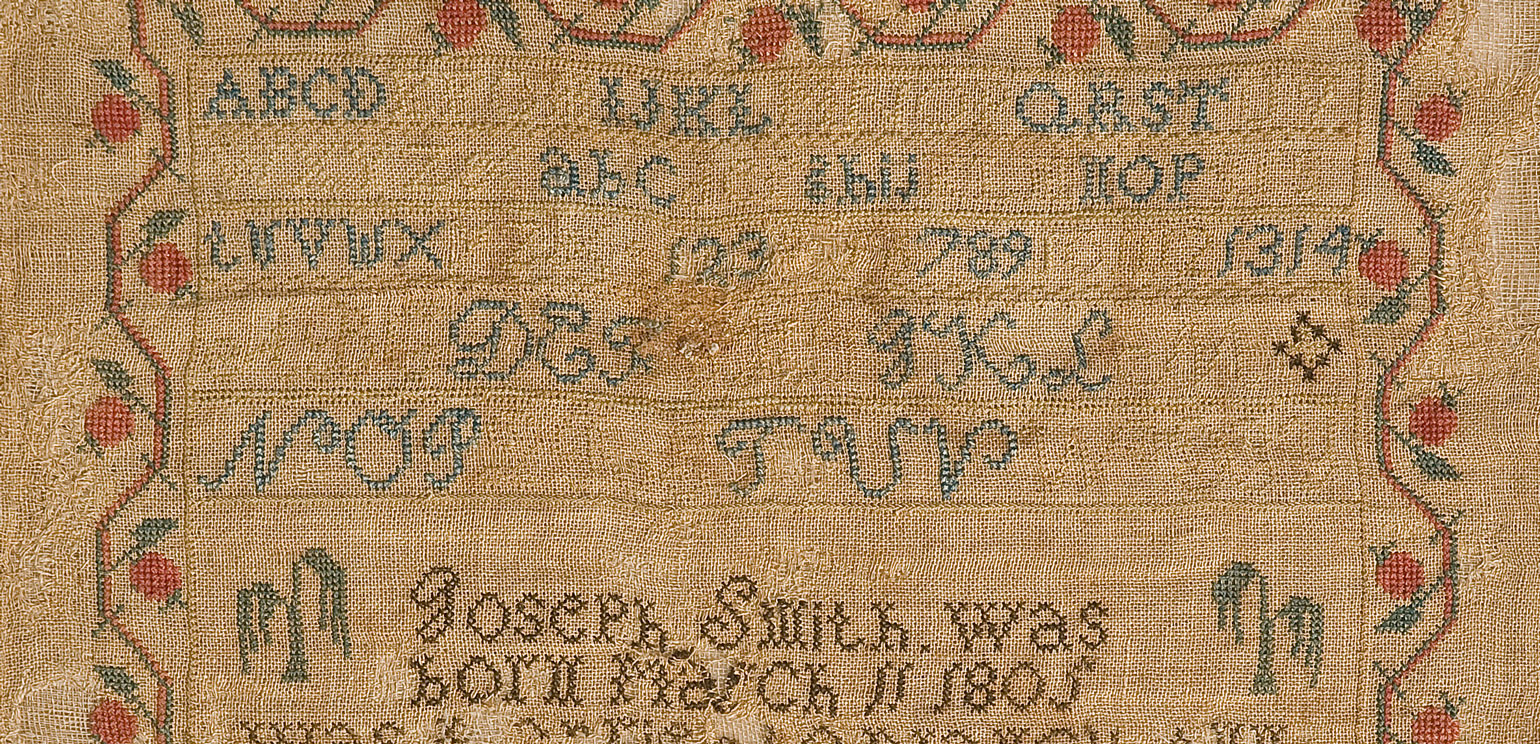 ABCD IJKL QRST
abc ghij nop
tuvwx 123 789 1314
DEF IKL
NOP TUV
Joseph Smith. was
born March 11 1801
was